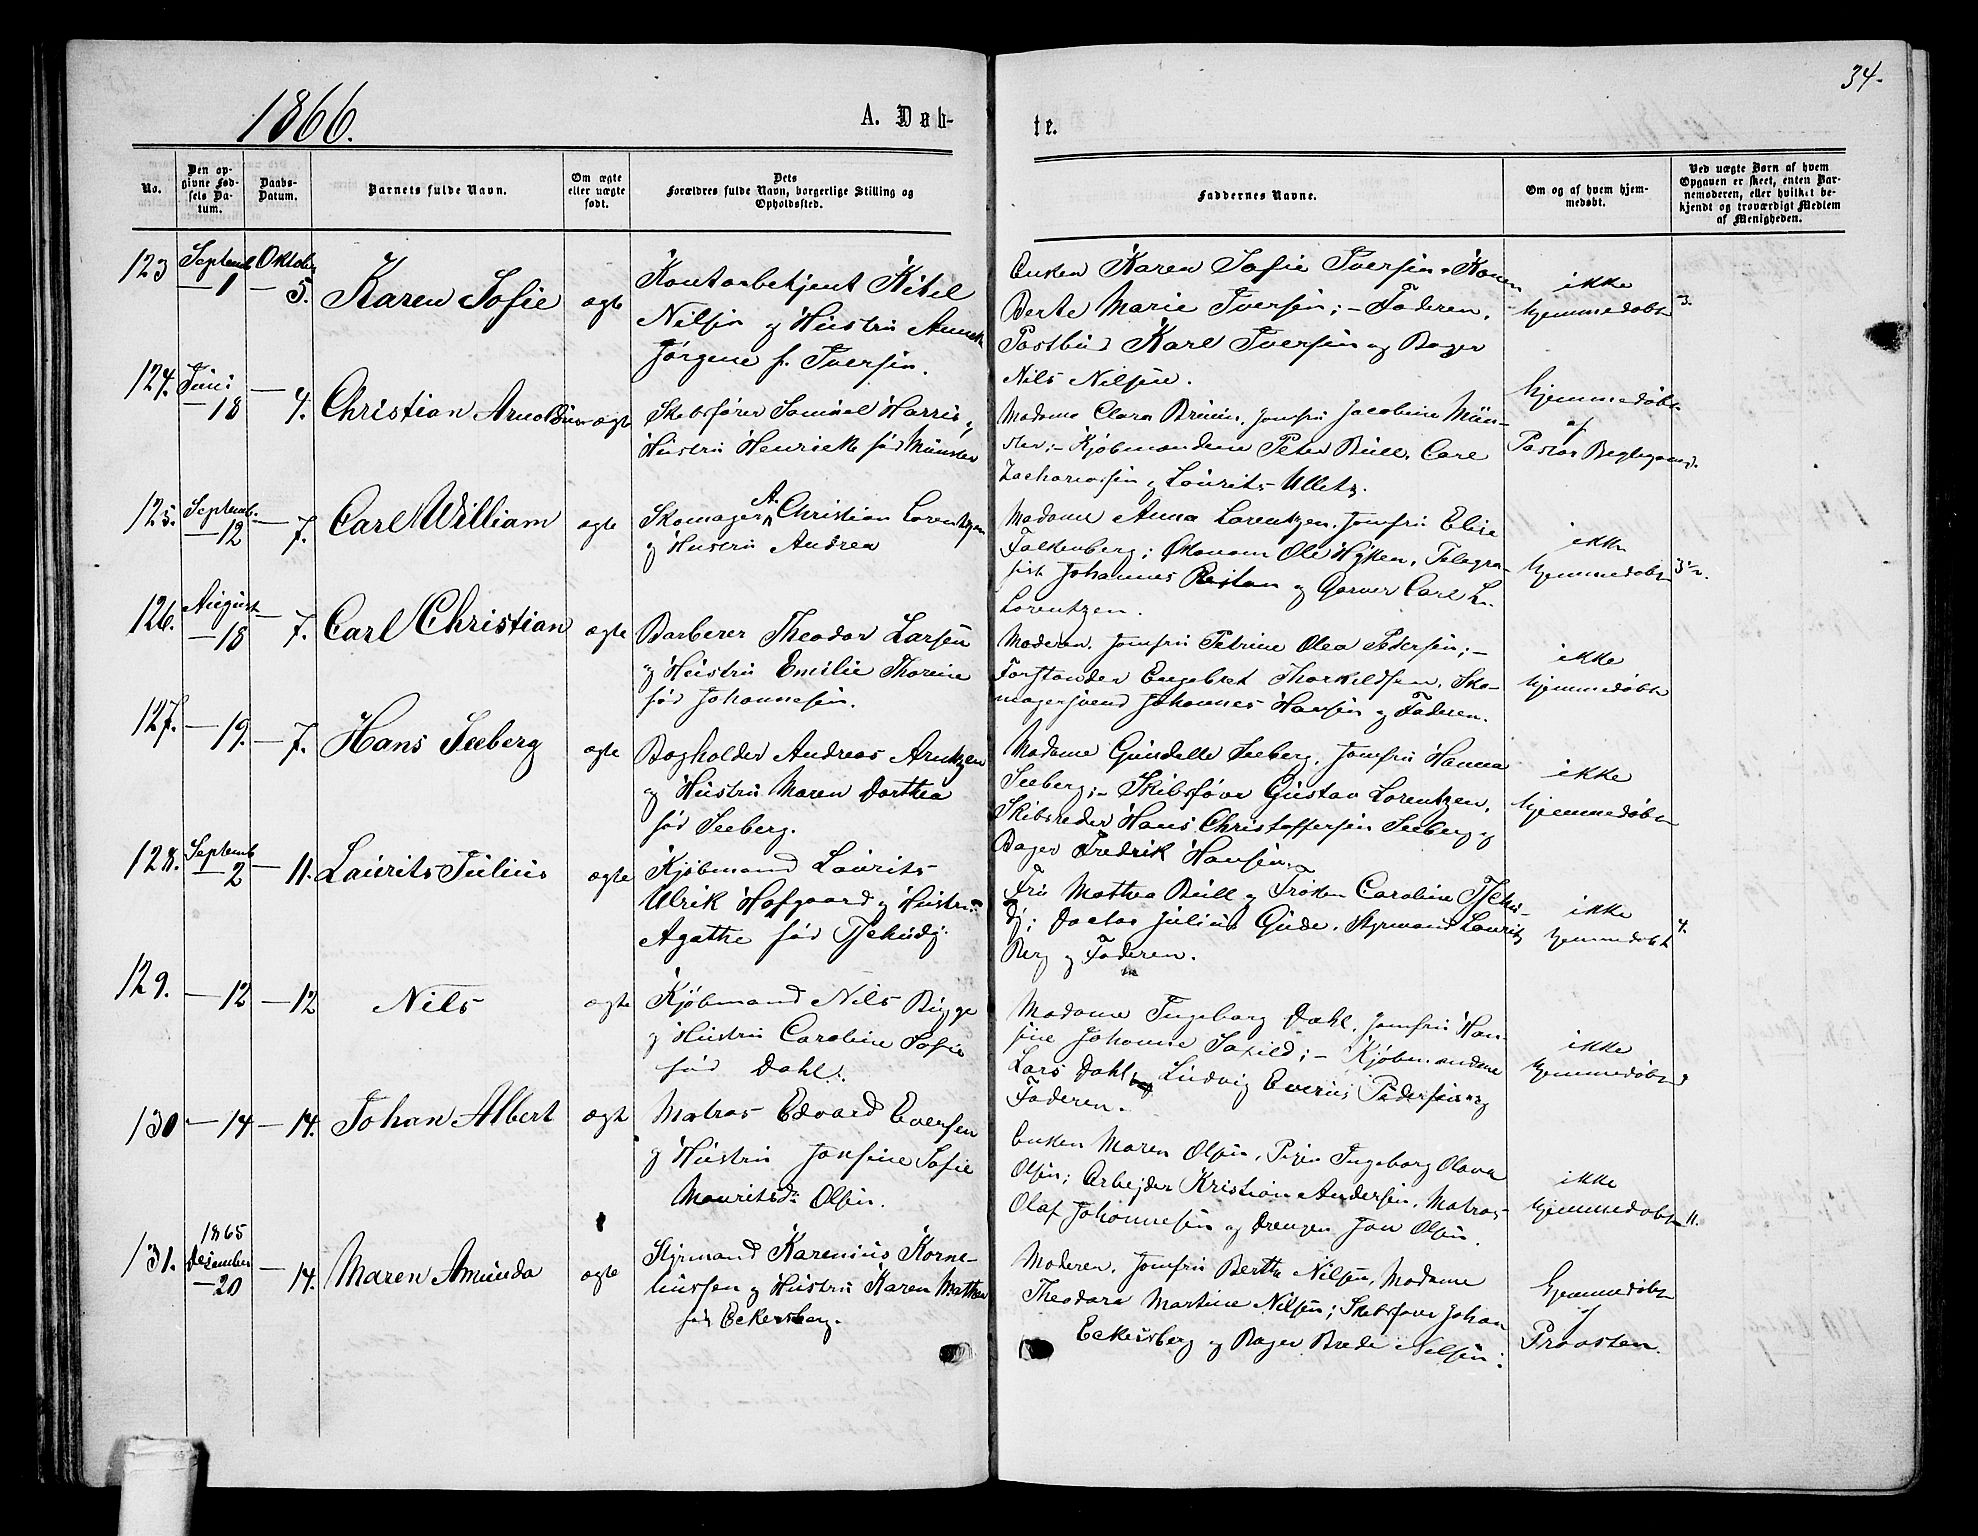 34.
1866.
A. Døb-
te.
No.
Den op-
givne Fød-
sels Da-
tum.
Daabs-
Datum.
Barnets fulde Navn.
Om ægte
eller uægte
født.
Dets
Forældres fulde Navn, borgerlige Stilling og
Opholdssted.
Faddernes Navne.
Om og af hvem hjem-
medøbt.
Ved uægte Børn af hvem
Opgaven er skeet, enten Bar-
nemoderen, eller hvilket be-
kjendt og troværdigt Medlem
af Menigheden.
123
Septemb
— 1
Oktober
— 5.
Karen Sofie
ægte
Kontorbetjent Kitel
Nilsen og Hustru Anne
Jørgene f. Iversen.
Enken Karen Sofie Iversen, Konen
Berte Marie Iversen; – Faderen,
Postbud Karl Iversen og Bager
Nils Nilsen.
ikke
hjemmedøbt
3.
124.
Juni
— 18
— 4.
Christian Arnoldus
ægte
Skibsfører Samuel Harris og
Hustru Henriette född Münster
Madame Clara Bruun, Jomfru Jacobine Mün-
ster; – Kjøbmændene Peter Bull, Carl
Zachariassen og Laurits Ulletz.
Hjemmedøbt
af
Pastor
125.
Septemb.
— 12
— 7.
Carl William
ægte
Skomager A. Christian Lorentzen
og Hustru Andrea
Madame Anna Lorentzen, Jomfru Elise
Falkenberg; Økonom Ole Hyken, Telegra-
fist Johannes og Garver Carl L.
Lorentzen.
ikke
hjemmedøbt
3½.
126.
August
— 18
— 7.
Carl Christian
ægte
Barberer Theodor Larsen
og Hustru Emilie Thorine
fød Johannesen.
Moderen, Jomfru Petrine Olea Pedersen; –
Forstander Engebret Thorkildsen, Sko-
magersvend Johannes Hansen og Faderen.
ikke
hjemmedøbt
127.
— 19.
— 7.
Hans Seeberg
ægte
Bogholder Andreas Arntzen
og Hustru Maren Dorthea
fød Seeberg.
Madame Gundelle Seeberg, Jomfru Hanna
Seeberg; – Skibsfører Gustav Lorentzen,
Skibsreder Hans Christoffersen Seeberg og
Bager Fredrik Hansen.
ikke
hjemmedøbt
128.
Septemb
— 2
— 11.
Laurits Julius
ægte
Kjøbmand Laurits
Ulrik Hofgaard og Hustru
Agathe fød Tschudj.
Fru Mathea Bull og Frøken Caroline Tschu-
dj; Doctor Julius Gude, Styrmand Lauritz
Berg og Faderen.
ikke
hjemmedøbt
4.
129.
— 12
— 12
Nils
ægte
Kjøbmand Nils Bugge
og Hustru Caroline Sofie
fød Dahl.
Madame Ingeborg Dahl, Jomfru Han-
sine Johanne Saxild; – Kjøbmændene
Lars Dahl, Ludvig Everius Pedersen og
Faderen.
ikke
hjemmedøbt
130
— 14
— 14.
Johan Albert
ægte
Matros Edvard Eversen
og Hustru Josefine Sofie
Mouritsdr. Olsen.
Enken Maren Olsen, Pigen Ingeborg Olava
Olsen; Arbejder Kristian Andersen, Matros
Olaf Johannesen og Drengen Jon Olsen.
ikke
hjemmedøbt
11.
131.
1865
Dezember
— 20
— 14.
Maren Amunda
ægte
Styrmand Karenius Korne-
liussen og Hustru Karen Mathea
fød Eckersberg.
Moderen, Jomfru Berthe Nilsen, Madame
Theodora Martine Nilsen; Skibsfører Johan
Eckersberg og Bager Brede Nilsen.
Hjemmedøbt
af
Provsten.